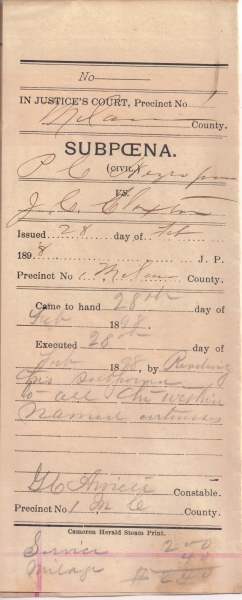 No
IN JUSTICE'S COURT, Precinct No 1
Milam County.
SUBPŒNA.
(CIVIL)
P C
VS.
J. C. Claxton
Issued 28 day of Feb
1898 J. P.
Precinct No 1 Milam County.
Came to hand 28th day of
Feb 1898.
Executed 28th day of
Feb 1898, by Reading
this subpoena
to all the within
named witnesses
Constable.
Precinct No 1 M C
Cameron Herald Steam Print.
Service 2.00
Milage 40
$ 2.40